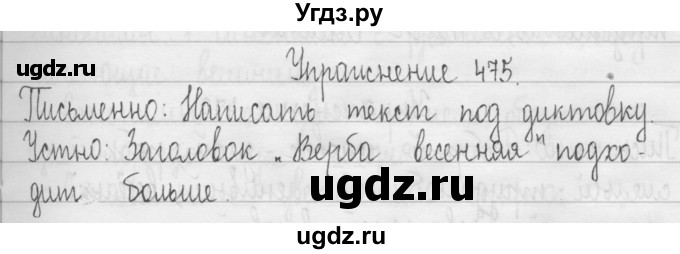 Угдз.ру
ugdz.ru
ugdz.ru
Упражнение 475.
Письменно: Написать текст под диктовку.
Устно: Заголовок „Верба весенняя" подхо-
дит больше.
ugdz.ru
ugdz.ru
ugdz.ru